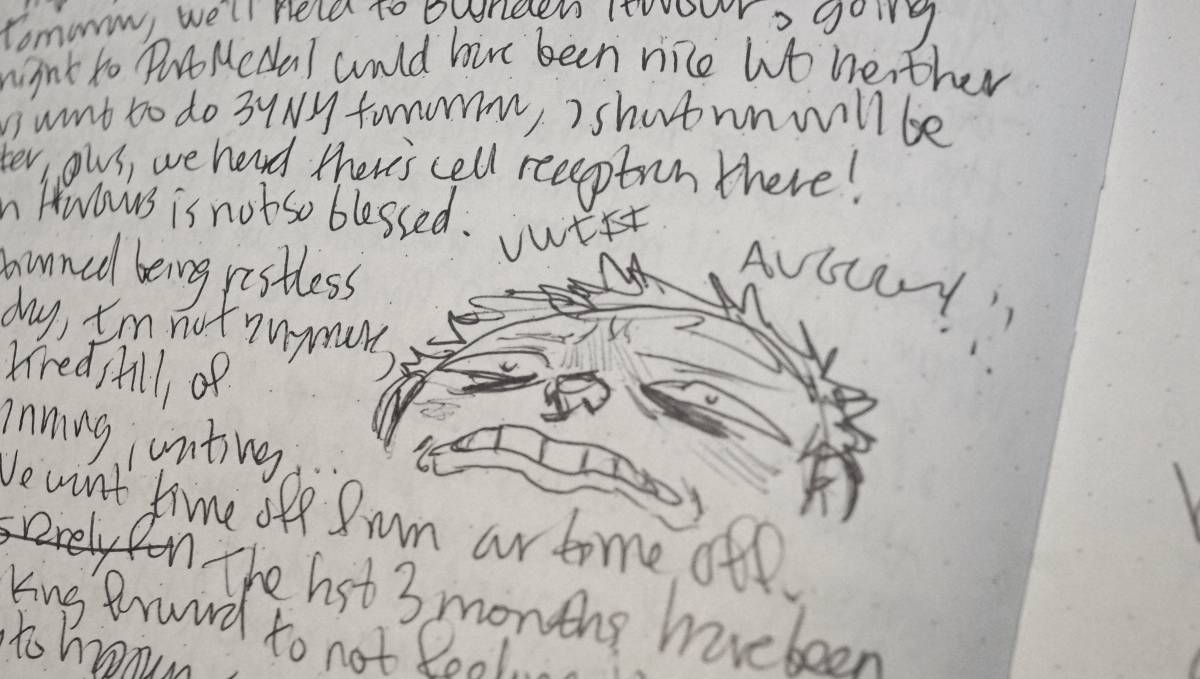 tomorrow, we'll head to Bunden Harbour, going
night to Port McNeil would have been nice but neither
want to do 34NM tomorrow, a short run will be
ter, plus, we heard there's cell reception there!
n Harbours is not so blessed.
WEEE
AUGGHH!
being restless
day, I'm not anymore,
tired still, of
running, writing...
We want time off from our time off.
rarely fun The last 3 months have been
king forward to not feeling
to happen